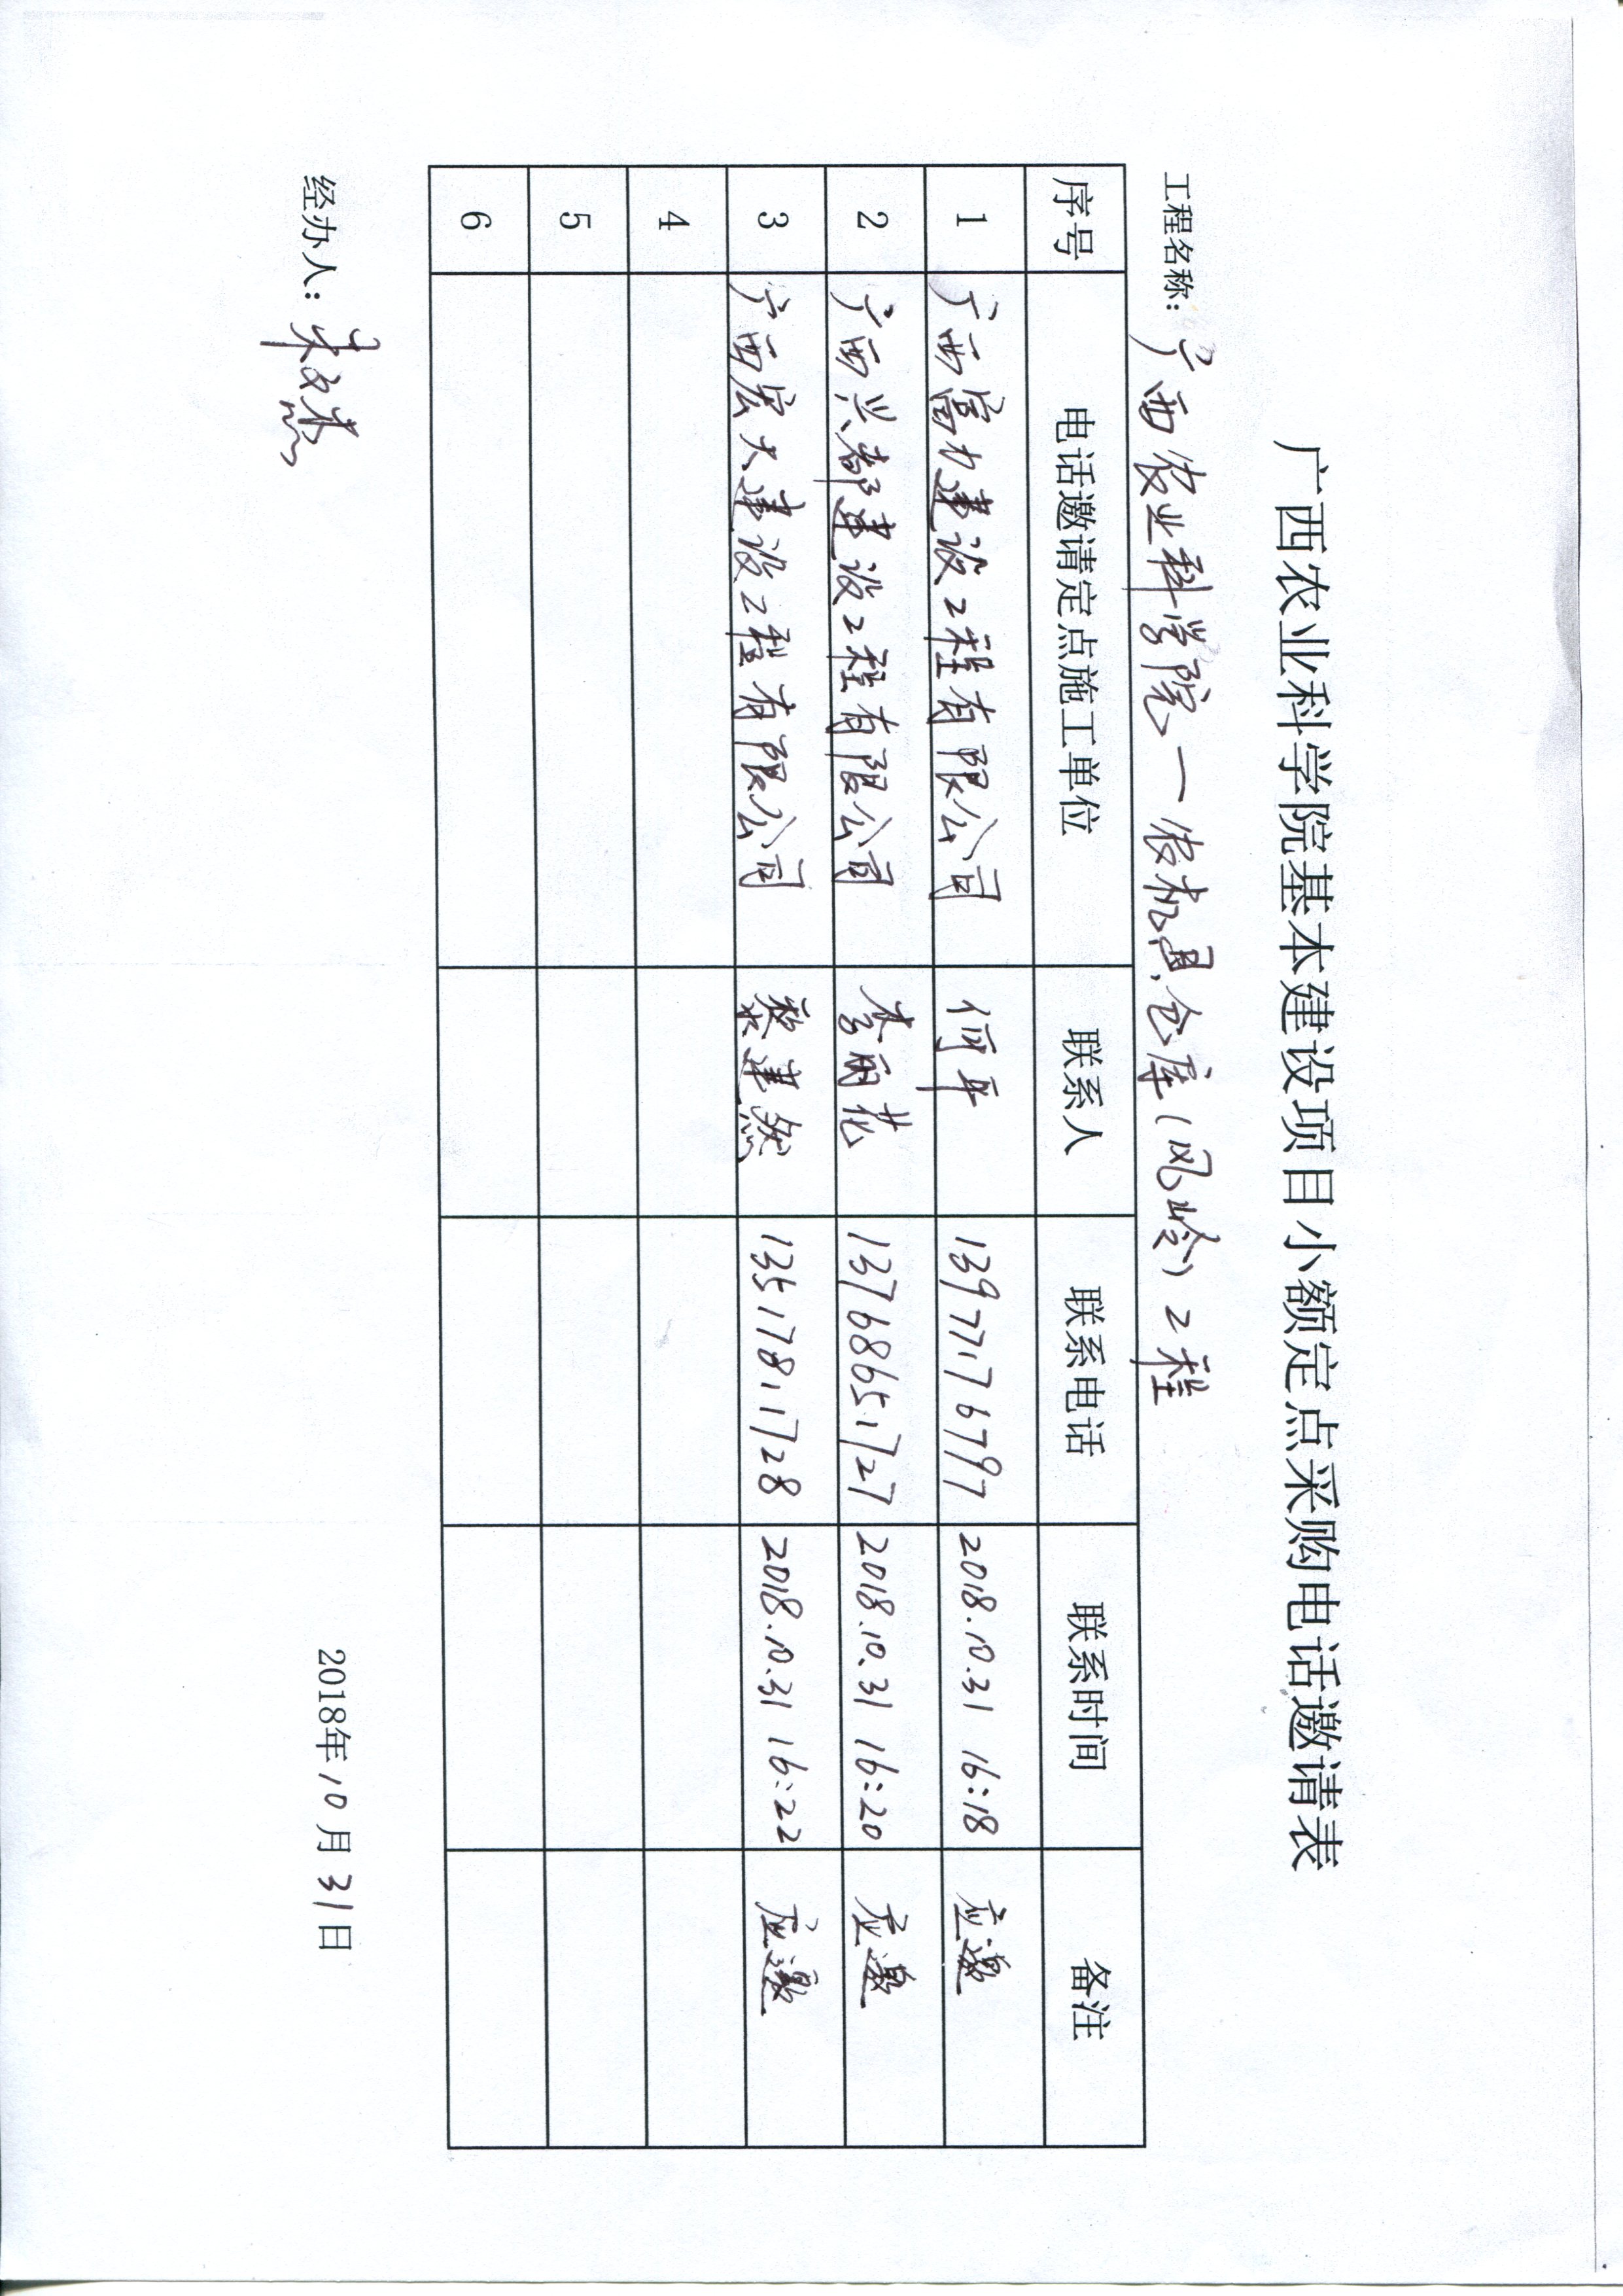 广西农业科学院基本建设项目小额定点采购电话邀请表
工程名称：广西农业科学院一农机具仓库（凤岭）工程
序号 电话邀请定点施工单位 联系人 联系电话 联系时间 备注
1 广西富力建设工程有限公司 何平 13977176797 2018.10.31 16:18 应邀
2 广西兴都建设工程有限公司 李丽花 13768651727 2018.10.31 16:20 应邀
3 广西宏大建设工程有限公司 黎建然 13517811728 2018.10.31 16:22 应邀
4
5
6
经办人：
2018年10月31日